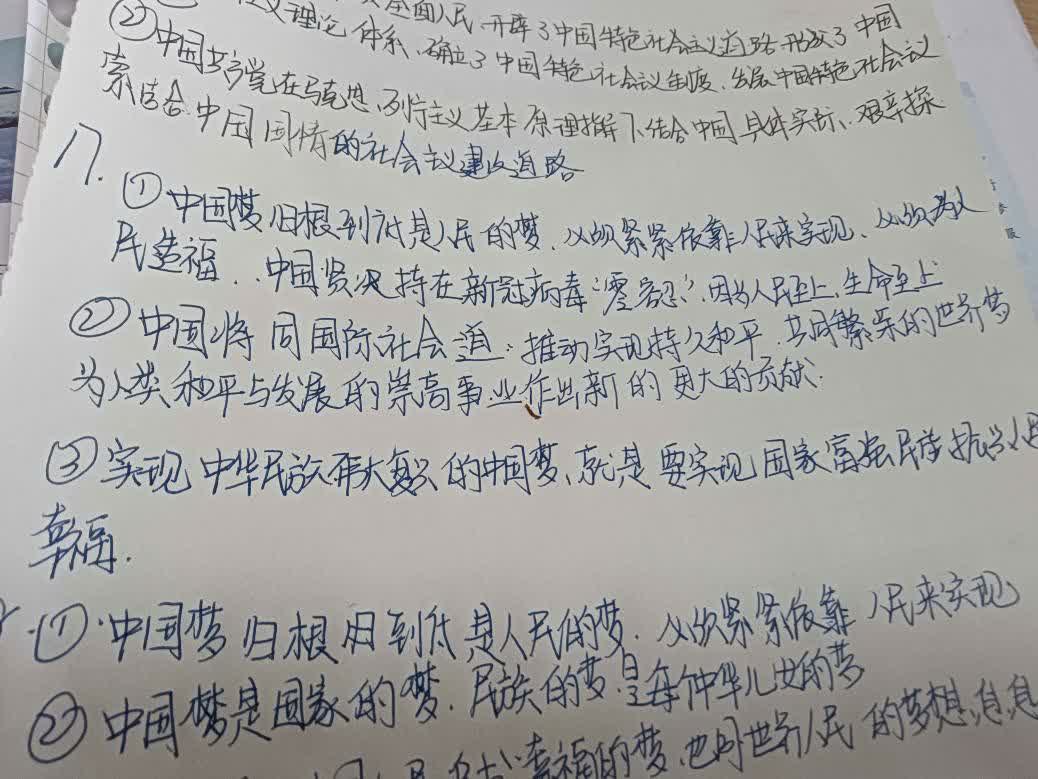 义理论体系、确立了中国特色社会主义制度、发展中国特色社会议
全面人民 开辟了中国特色社会主义道路 形成了中国
②中国共产党在马克思、列宁主义基本原理指导下、结合中国具体实际、艰辛探
索适合中国国情的社会主议建设道路
17.
①中国梦归根到底是人民的梦、必须紧紧依靠人民来实现、必须为人
民造福.. 中国坚决持在新冠病毒“零容忍”.因为人民至上,生命至上
②中国将同国际社会一道:推动实现持久和平.共同繁荣的世界梦
为人类和平与发展的崇高事业作出新的更大的贡献.
③实现中华民族伟大复兴的中国梦、就是要实现国家富强民族振兴人民
幸福.
①.中国梦归根归到底是人民的梦.必须紧紧依靠人民来实现
②中国梦是国家的梦.民族的梦.是每个中华儿女的梦
幸福的梦.也同世界人民的梦想息息